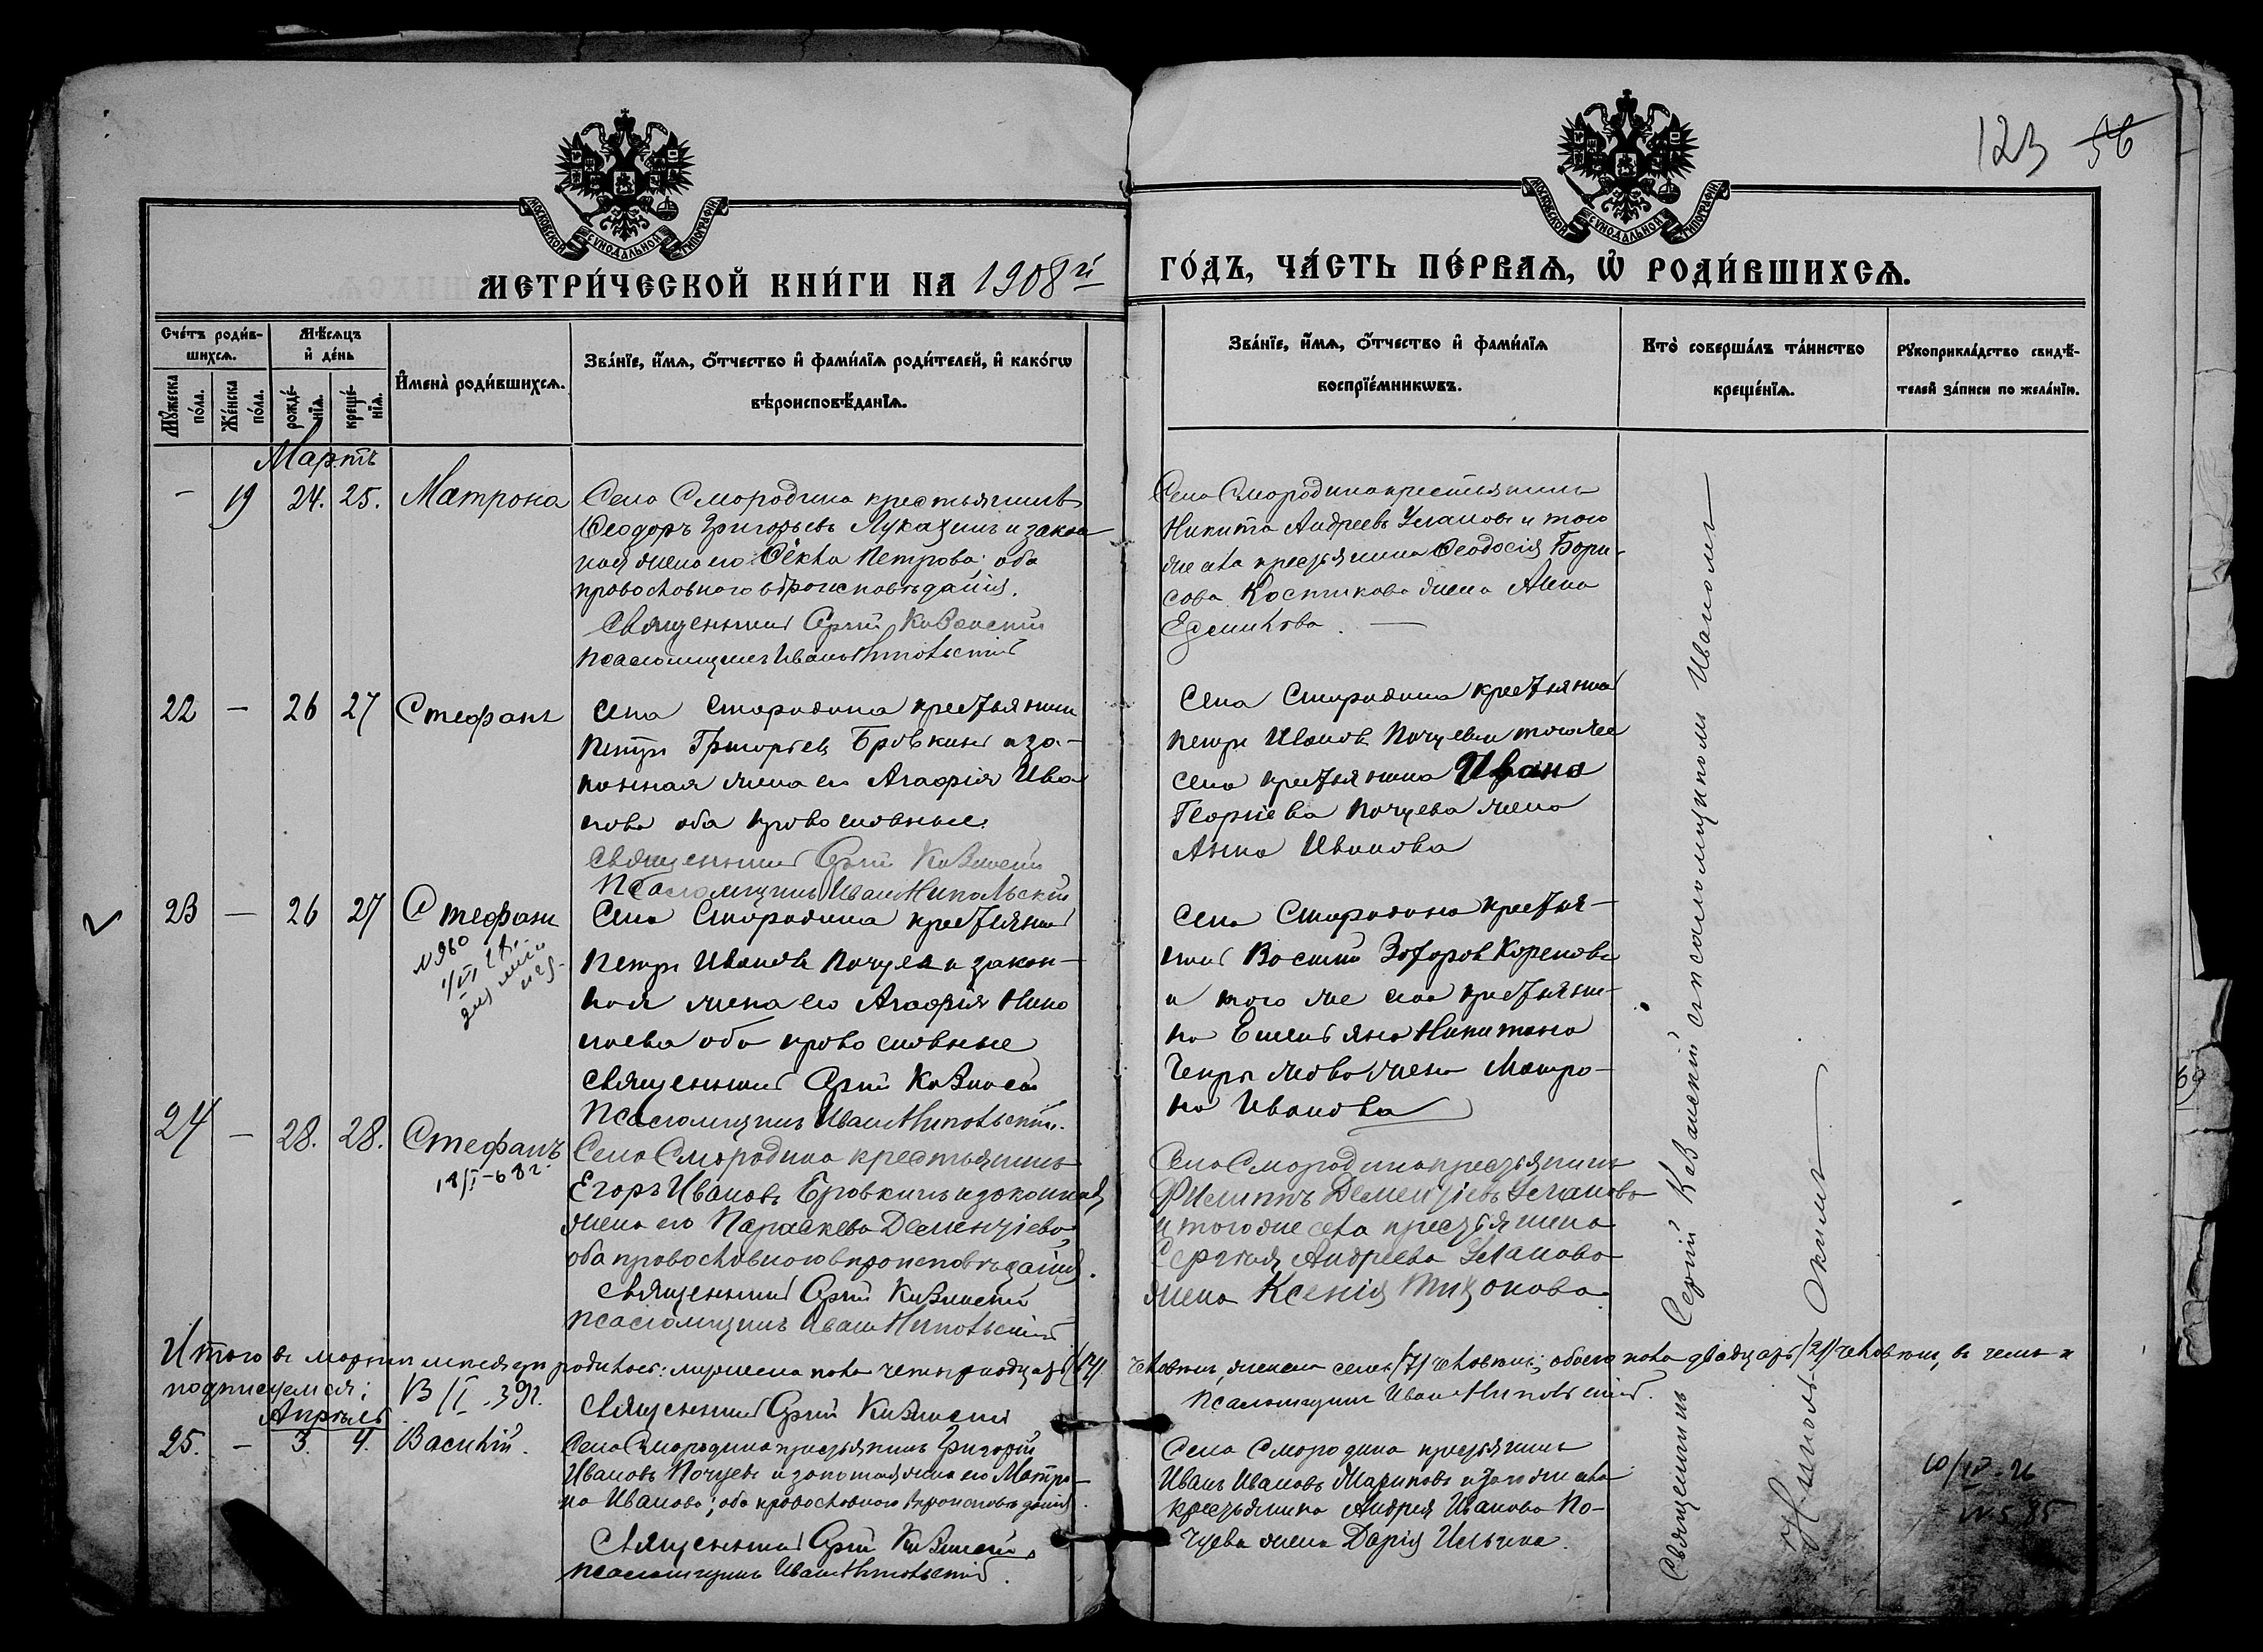 123 56
МОСКОВСКОЙ СѴНОДАЛЬНОЙ ТИПОГРАФІИ
МОСКОВСКОЙ СѴНОДАЛЬНОЙ ТИПОГРАФІИ
МЕТРИ́ЧЕСКОЙ КНИ́ГИ НА 1908й
ГО́ДЪ, ЧА́СТЬ ПЕ́РВАѦ, Ѿ РОДИ́ВШИХСѦ.
Сче́тъ роди́в-
шихсѧ.
Мꙋ́жеска по́ла.
Же́нска по́ла.
Мѣ́сѧцъ
и҆ де́нь
рожде́-нїѧ.
креще́-нїѧ.
И҆мена̀ роди́вшихсѧ.
Зва́нїе, и҆́мѧ, ѻ҆́тчество и҆ фами́лїѧ роди́телей, и҆ како́гѡ
вѣроисповѣ́данїѧ.
Зва́нїе, и҆́мѧ, ѻ҆́тчество и҆ фами́лїѧ
воспрїе́мникѡвъ.
Кто̀ соверша́лъ та́инство
креще́нїѧ.
Рꙋкоприкла́дство свидѣ́-
телей за́писи по жела́нїю.
Мартъ
– 19 24. 25. Матрона
Села Смородина крестьянинъ
Ѳеодоръ Григорьевъ Лукахинъ и закон
ная жена его Ѳекла Петрова; оба
православного вѣроисповѣданія.
Священникъ Сергій Казанскій
Псаломщикъ Иванъ Никольскій
Села Смородина крестьянинъ
Никита Андреевъ Улановъ и того
же села крестьянина Ѳеодосія Бори-
сова Костикова жена Анна
22 – 26 27 Стефанъ
Села Смородина крестьянинъ
Петръ Григорьевъ Бровкинъ и за-
конная жена его Агафія Ива
нова оба православные.
Священникъ Сергій Казанскій
Псаломщикъ Иванъ Никольскій
Села Смородина крестьянинъ
Петръ Ивановъ Почуевъ и того же
села крестьянина Ивана
Георгіева Почуева жена
Анна Иванова
23 – 26 27 Стефанъ
N 960
Села Смородина крестьянинъ
Петръ Ивановъ Почуевъ и закон-
ная жена его Агафія Нико
лаева оба православные
Священникъ Сергій Казанскій
Псаломщикъ Иванъ Никольскій.
Села Смородина крестья-
нинъ Василій Захаровъ Кореновъ
и того же села крестьяни-
на Емельяна Никитина
жена Матро-
на Иванова
24 – 28. 28. Стефанъ
18/I-68г.
Села Смородина крестьянинъ
Егоръ Ивановъ Бровкинъ и законная
жена его Параскева Дементіева
оба православного вѣроисповѣданія.
Священникъ Сергій Казанскій
Псаломщикъ Иванъ Никольскій
Села Смородина крестьянинъ
Филиппъ Дементіевъ Улановъ
и того же села крестьянина
Сергея Андреева Уланова
жена Ксенія Тихонова.
Итого въ мартѣ мѣсяцѣ родилось: мужеска пола четырнадцать (14)
человѣкъ, женска семь (7) человѣкъ; обоего пола двадцать (21) человѣкъ, въ чемъ и
подписуемся:
13/I-39г.
Священникъ Сергій Казанскій
Псаломщикъ Иванъ Никольскій.
Апрѣль
25. – 3. 4. Василій.
Села Смородина крестьянинъ Григорій
Ивановъ Почуевъ и законная жена его Матро-
на Иванова; оба православного вѣроисповѣданія.
Священникъ Сергій Казанскій
Псаломщикъ Иванъ Никольскій.
Села Смородина крестьянинъ
Иванъ Ивановъ Жариковъ и того же села
крестьянина Андрея Иванова По-
чуева жена Дарія Ильина.
Священникъ Сергій Казанскій съ псаломщикомъ Иваномъ
Никольскимъ
10/IV-26
N 585
69